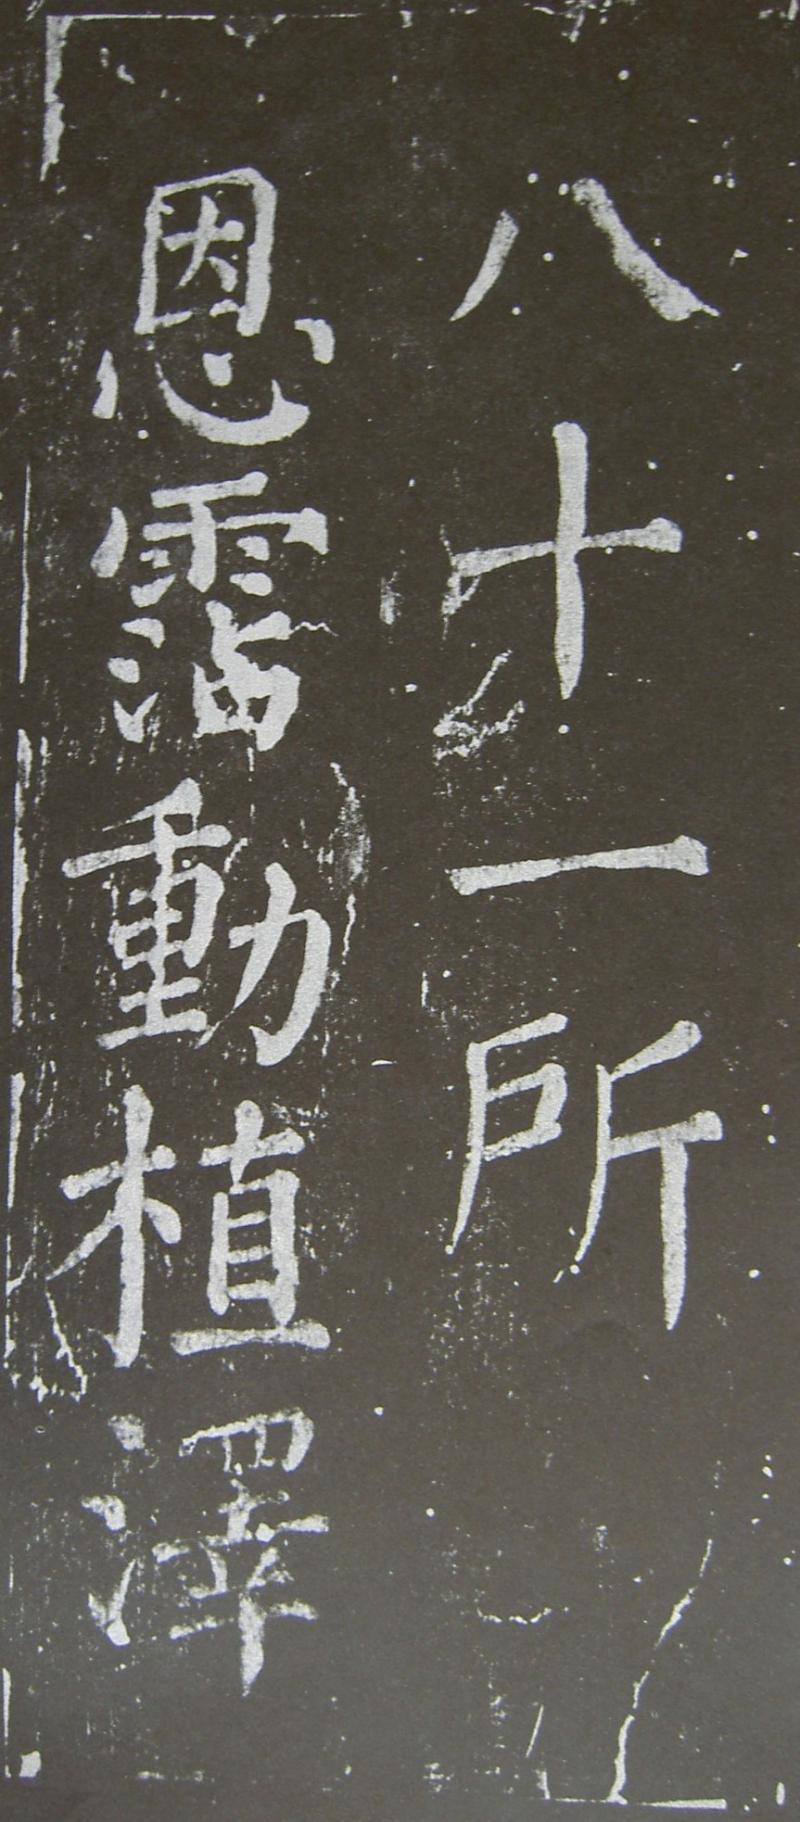 八十一所
恩霑動植澤